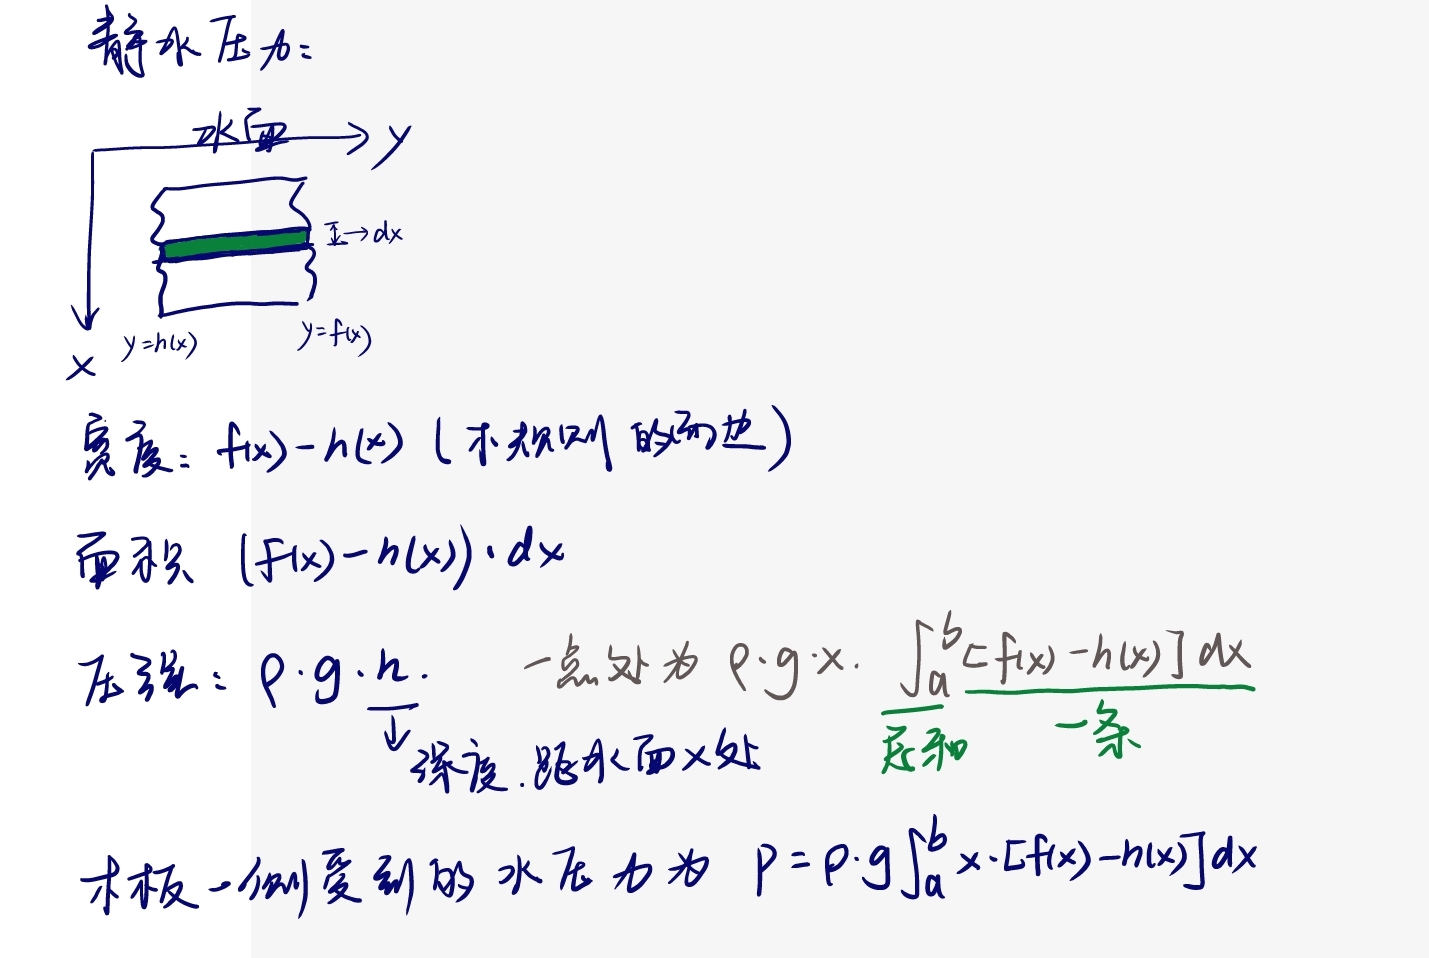 静水压力:
水面 y
→dx
x y=h(x) y=f(x)
宽度: f(x)-h(x) (不规则的两边)
面积 (f(x)-h(x))·dx
压强: ρ·g·h. 一点处为 ρ·g·x. ∫ₐᵇ[f(x)-h(x)]dx
↓ 求和 一条
深度.距水面x处
木板一侧受到的水压力为 P=ρ·g∫ₐᵇx·[f(x)-h(x)]dx